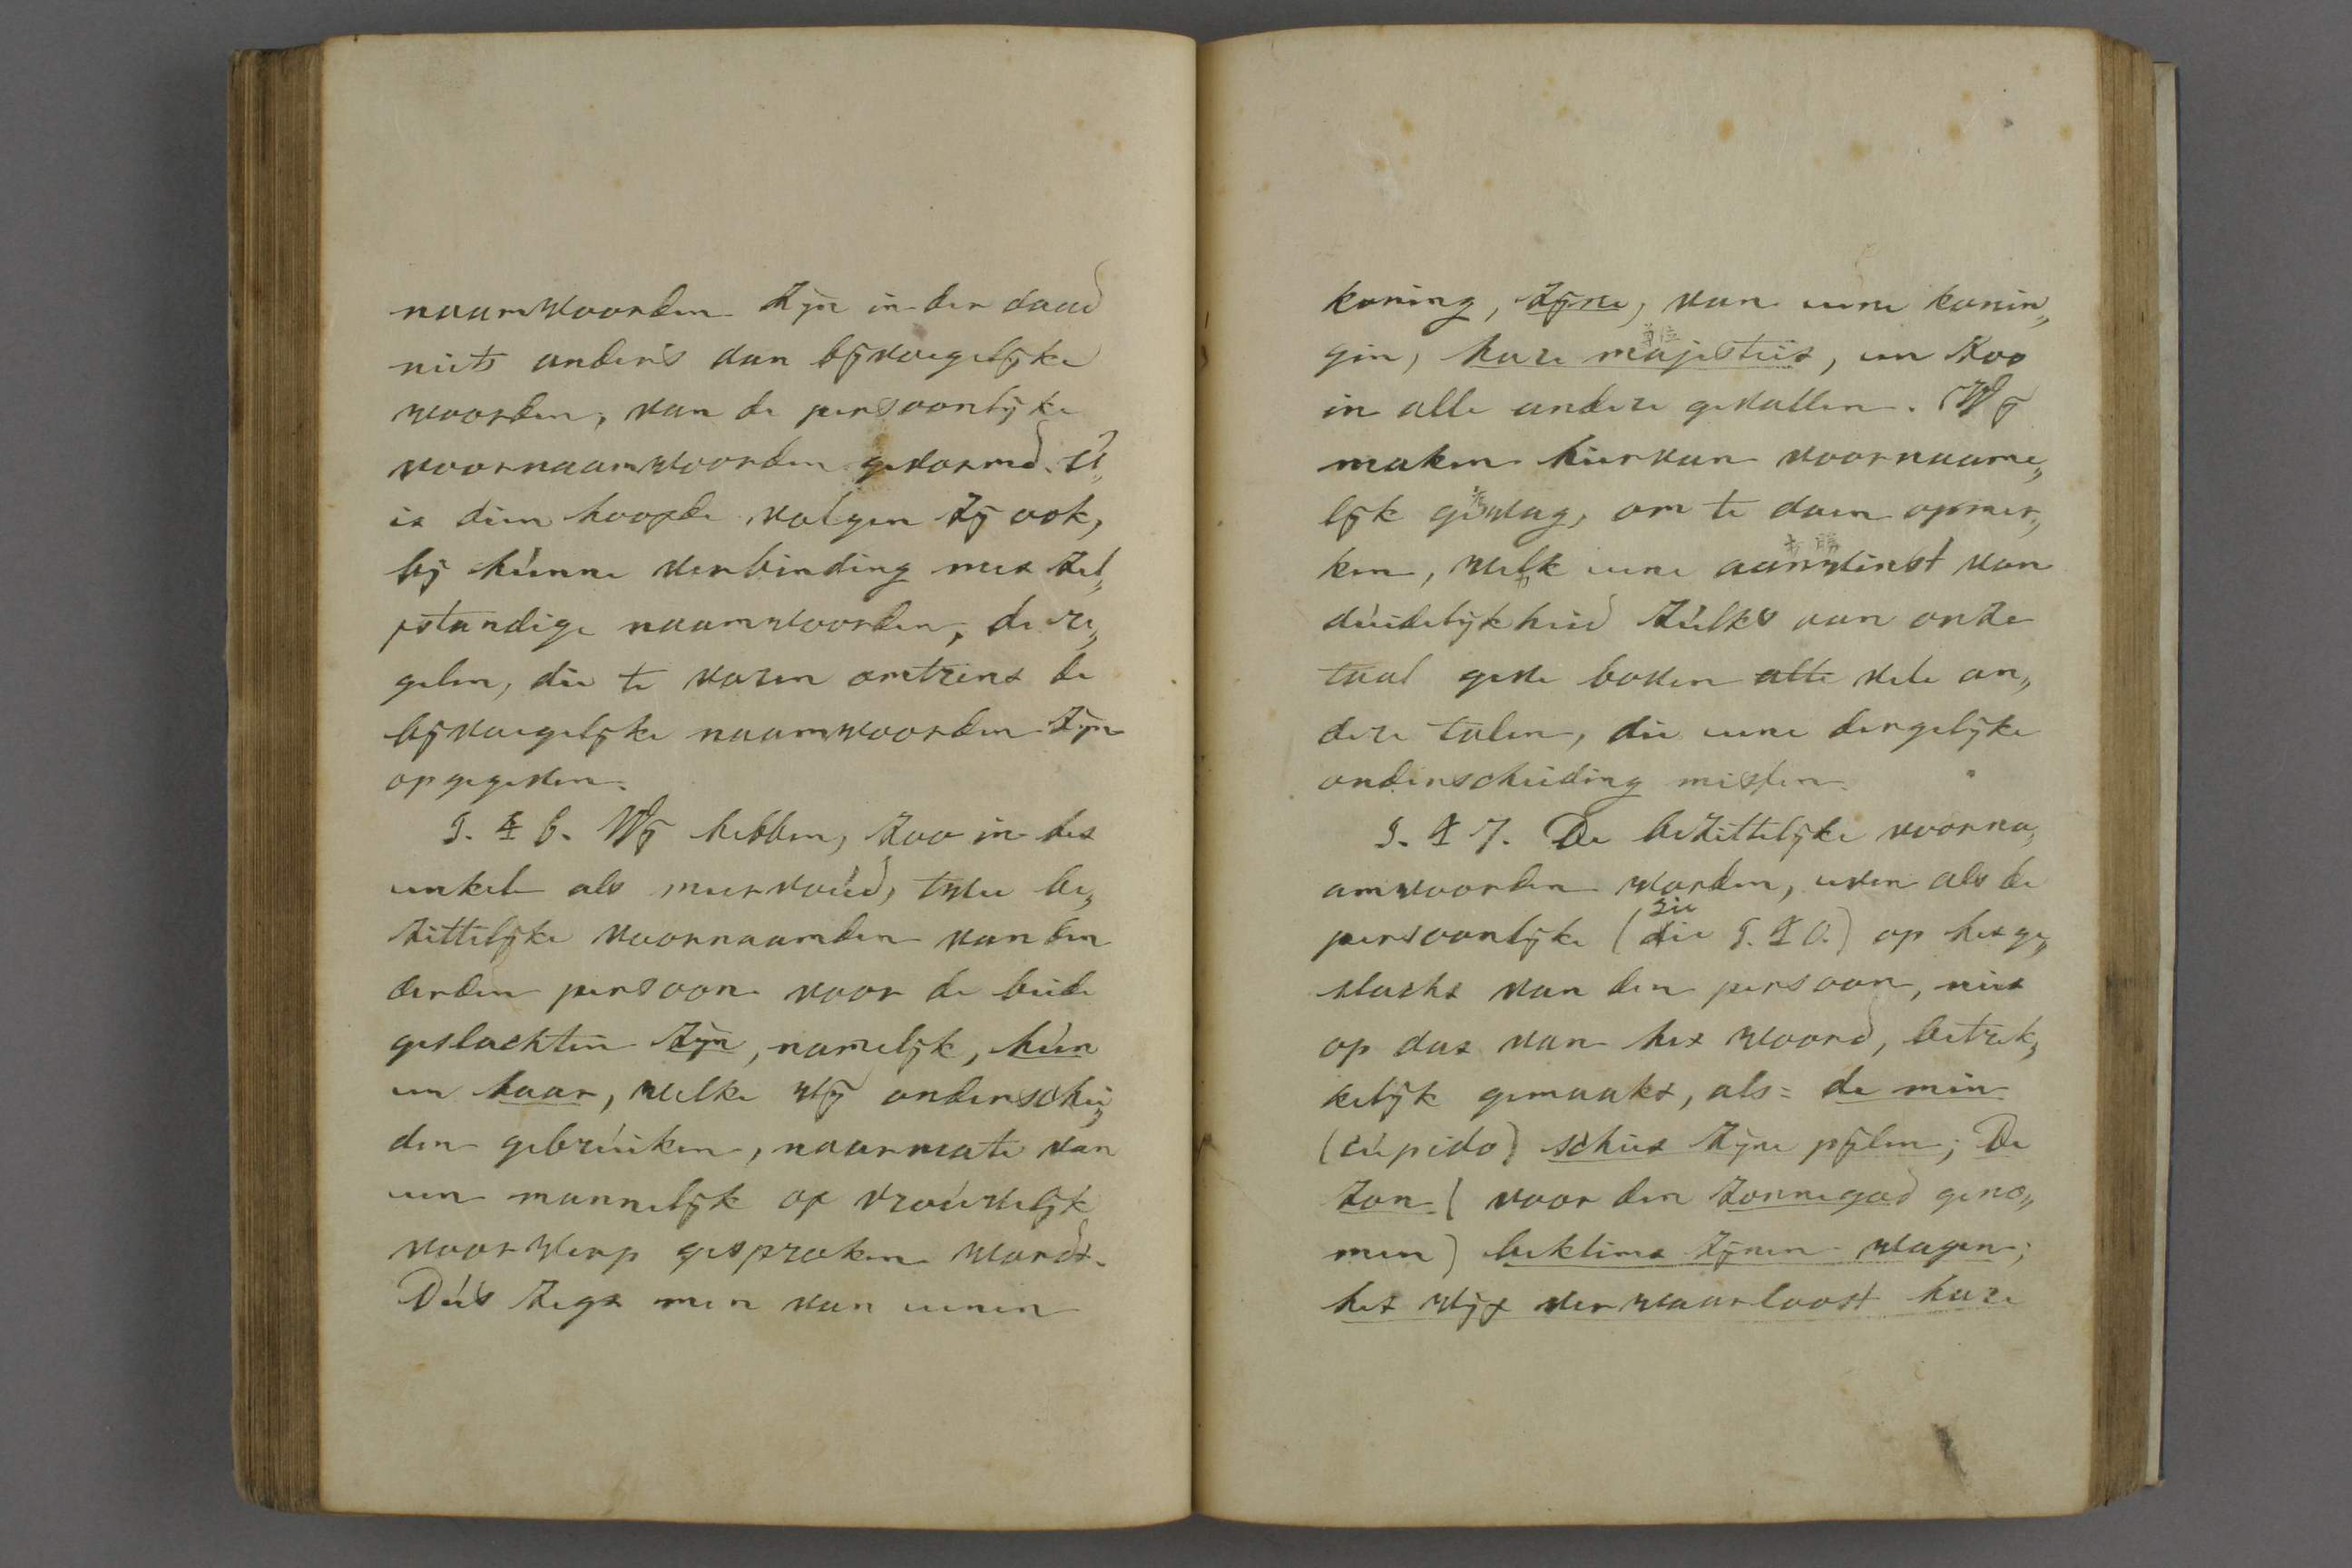 naamwoorden zijn in der daad
niets anders dan bijvoegelijke
woorden, van de persoonlijke
voornaamwoorden gevormd. U„
it dien hoofde volgen zij ook,
bij hunne verbinding met zel„
fstandige naamwoorden, de re„
gelen, die te voren omtrent de
bijvoegelijke naamwoorden zijn
opgegeven.
§. 6. Wij hebben, zoo in het
enkel als meervoud, twee be„
zittelijke voornaamden van den
derden persoon voor de beide
geslachten zijn, namelijk, hun
en haar, welke wij onderschei„
den gebruiken, naarmate van
een mannelijk of vrouwelijk
voorwerp gesproken wordt.
Dus zegt men van eenen
koning, zijne, van eene konin„
gin, hare majesteit, en zoo
in alle andere gevallen. Wij
maken hiervan voorname„
lijk gewag, om te doen opmer„
ken, welk eene aanwinst van
duidelijkheid zulks aan onze
taal geve boven alle vele an„
dere talen, die eene dergelijke
onderscheiding missen.
§. 7. De bezittelijke voorna„
amwoorden worden, even als de
persoonlijke (zie §. 10.) op het ge„
slacht van den persoon, niet
op dat van het woord, betrek„
kelijk gemaakt, als: de min
(cupido) schiet zijne pijlen; De
zon (voor den zonnegod geno„
men) beklimt zijnen wagen;
het wijf verwaarloost hare